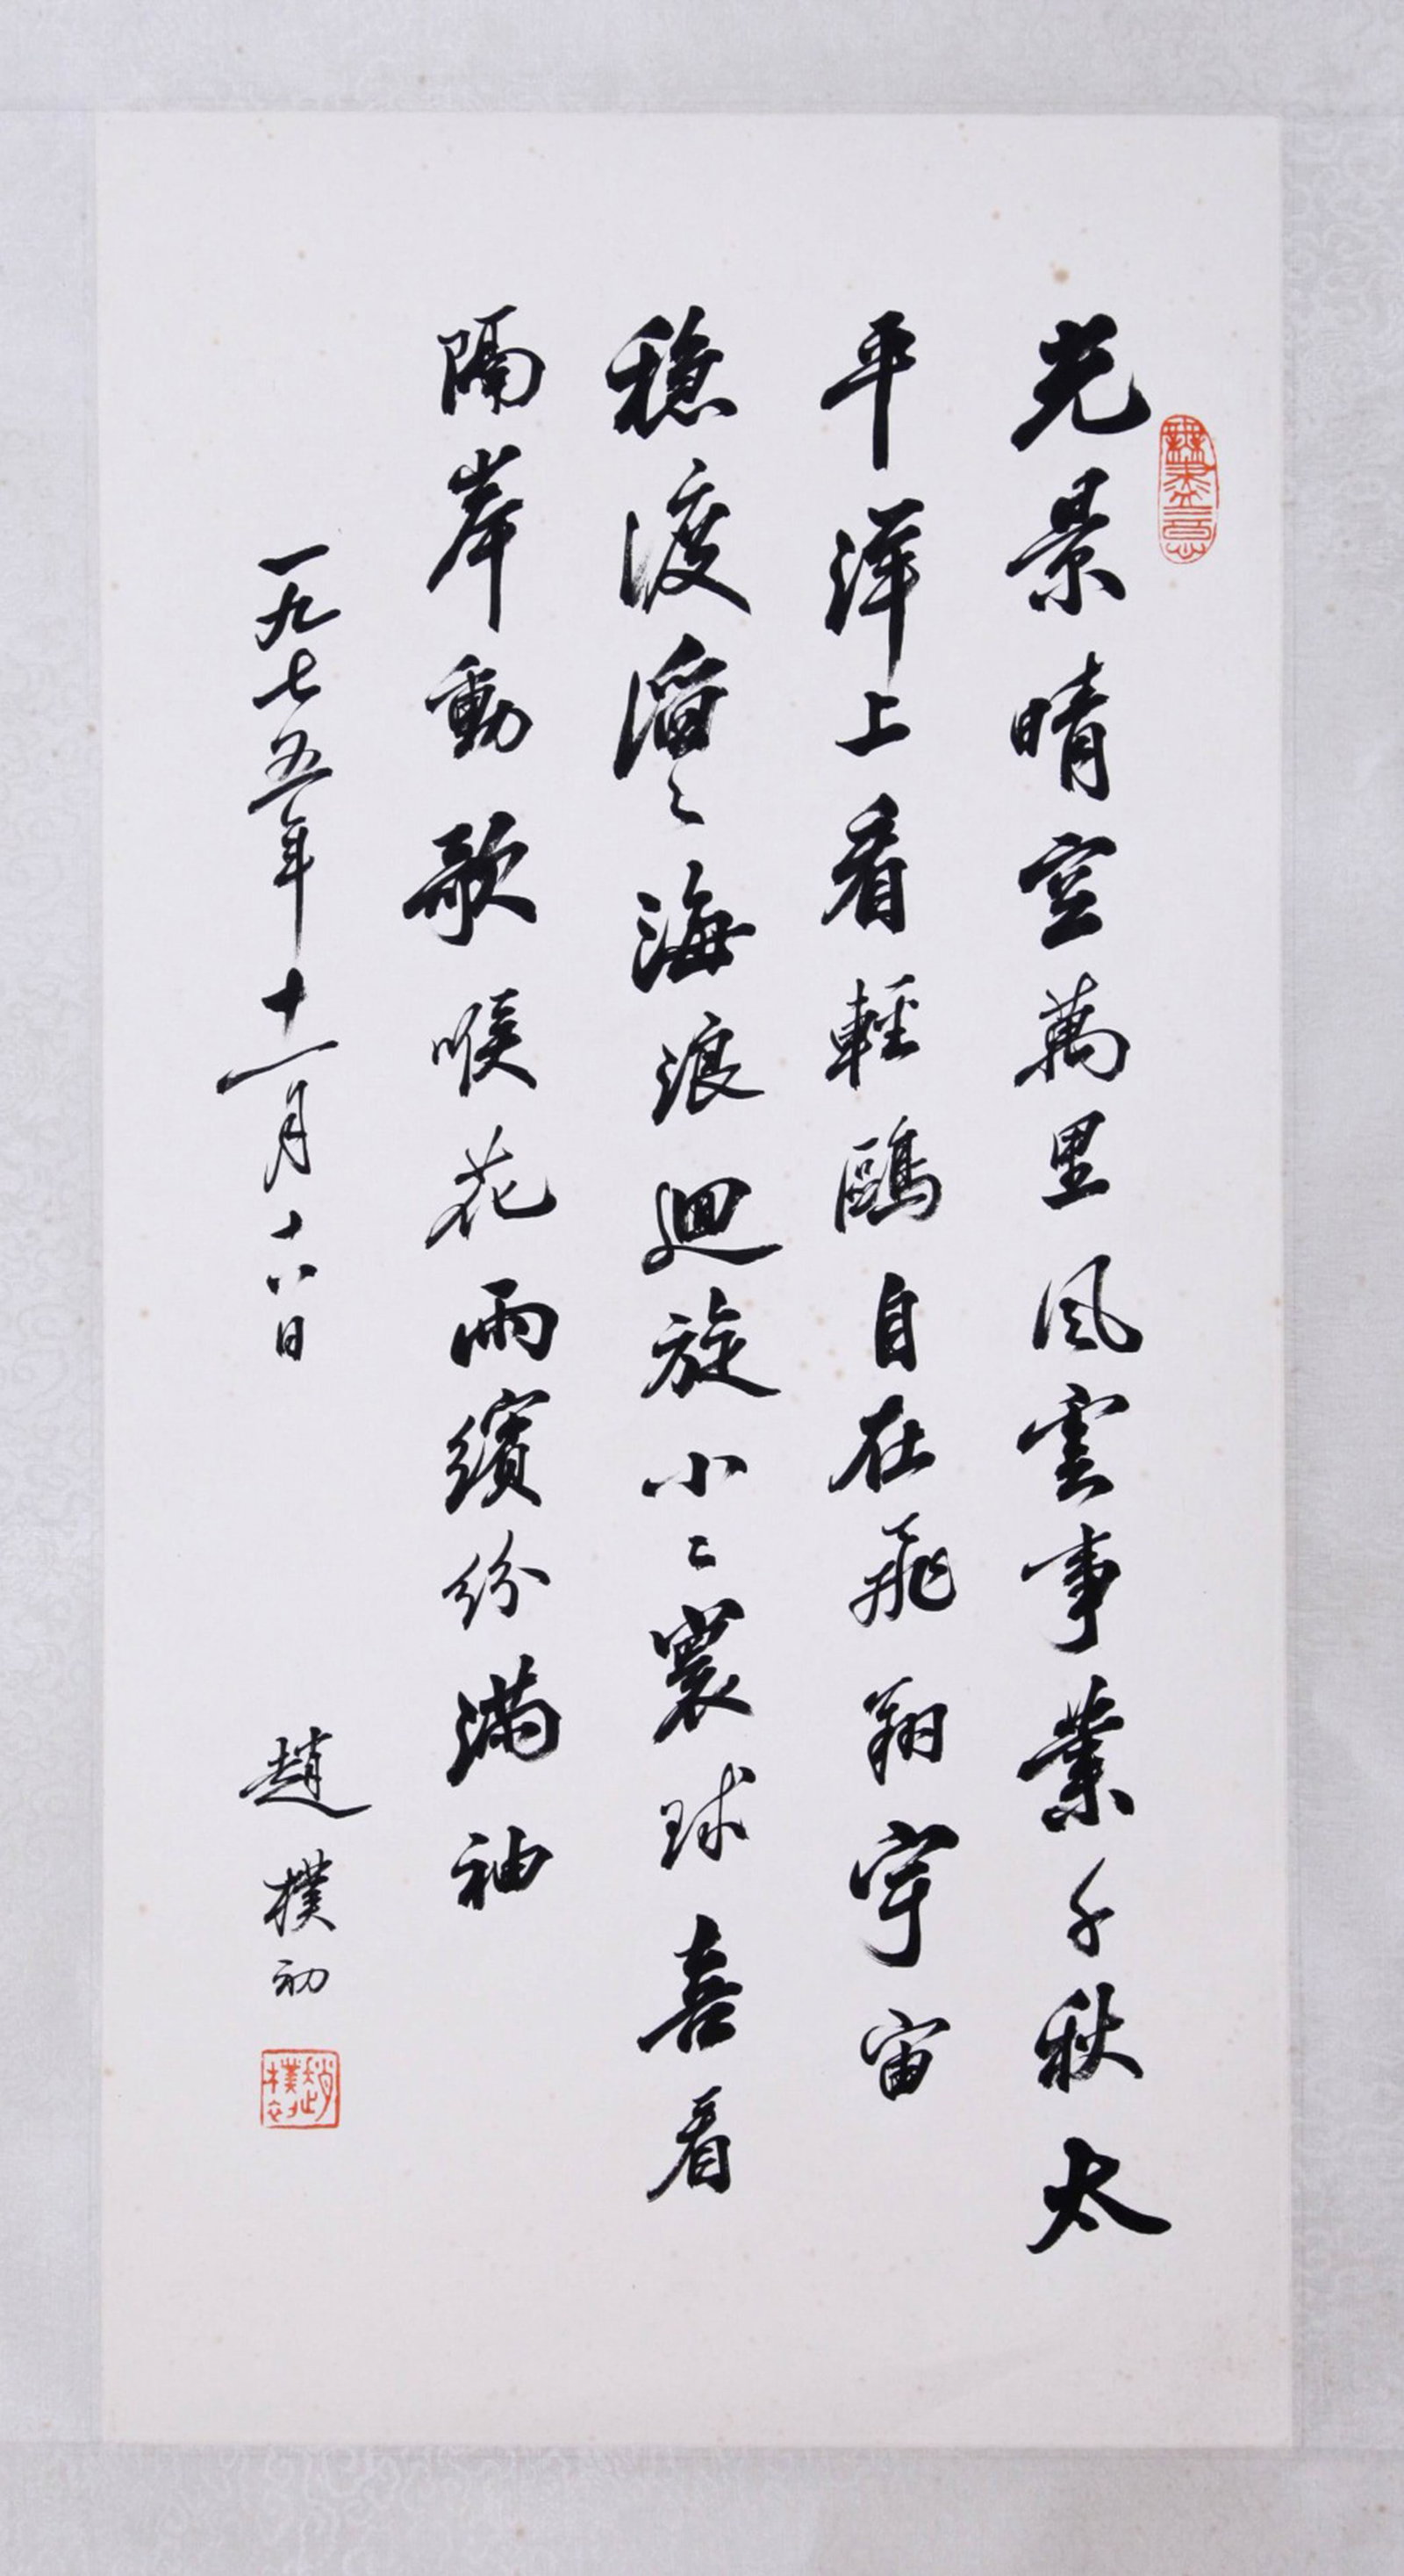 光景晴空萬里風雲事業千秋太
平洋上看輕鷗自在飛翔宇宙
穩渡滔〻海浪迴旋小〻寰球喜看
隔岸動歌喉花雨繽紛滿袖
一九七五年十一月十八日
趙樸初
無盡意
趙樸初